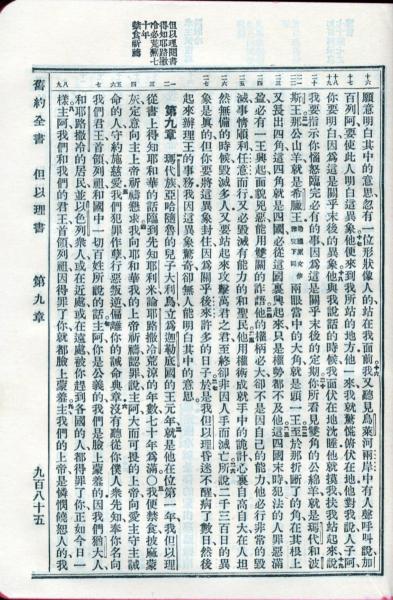 願意明白其中的意思忽有一位形狀像人的站在我面前又聽見烏萊河兩岸中有人聲呼叫說加
百列阿要使此人明白這異象他便來到我所站的地方他一來我就驚慌俯伏在地他對我說人子阿
你要明白因爲這是關乎末後的異象他與我說話的時候我面伏在地沈睡他就摸我扶我站起來說
我要指示你惱怒臨完必有的事因爲這是關乎末後的定期你所看見雙角的公綿羊就是瑪代和波
斯王那公山羊就是希臘王兩眼當中的大角就是頭一王至於那折斷了的角在其根上
又長出四角這四角就是四國必從這國裏興起來只是權勢都不及他這四國末時犯法的人罪惡滿
盈必有一王興起面貌兇惡能用雙關的詐語他的權柄必大卻不是因自己的能力他必行非常的毀
滅事情順利任意而行又必毀滅有能力的和聖民他用權術成就手中的詭計心裏自高自大在人坦
然無備的時候毀滅多人又要站起來攻擊萬君之君至終卻非因人手而滅亡所說二千三百日的異
象是眞的但你要將這異象封住因爲關乎後來許多的日子於是我但以理昏迷不醒病了數日然後
起來辦理王的事務我因這異象驚奇卻無人能明白其中的意思
但以理閱書
得知耶路撒
冷必荒蕪七
十年
禁食祈禱
第九章 瑪代族亞哈隨魯的兒子大利烏立爲迦勒底國的王元年就是他在位第一年我但以理
從書上得知耶和華的話臨到先知耶利米論耶路撒冷荒涼的年數七十年爲滿我便禁食披麻蒙
灰定意向主上帝祈禱懇求我向耶和華我的上帝祈禱認罪說主阿大而可畏的上帝向愛主守主誡
命的人守約施慈愛我們犯罪作孽行惡叛逆偏離你的誡命典章沒有聽從你僕人衆先知奉你名向
我們君王首領列祖和國中一切百姓所說的話主阿你是公義的我們是臉上蒙羞的因我們猶大人
和耶路撒冷的居民並以色列衆人或在近處或在遠處被你趕到各國的人都得罪了你正如今日一
樣主阿我們和我們的君王首領列祖因得罪了你就都臉上蒙羞主我們的上帝是憐憫饒恕人的我
舊約全書 但以理書 第九章 九百八十五